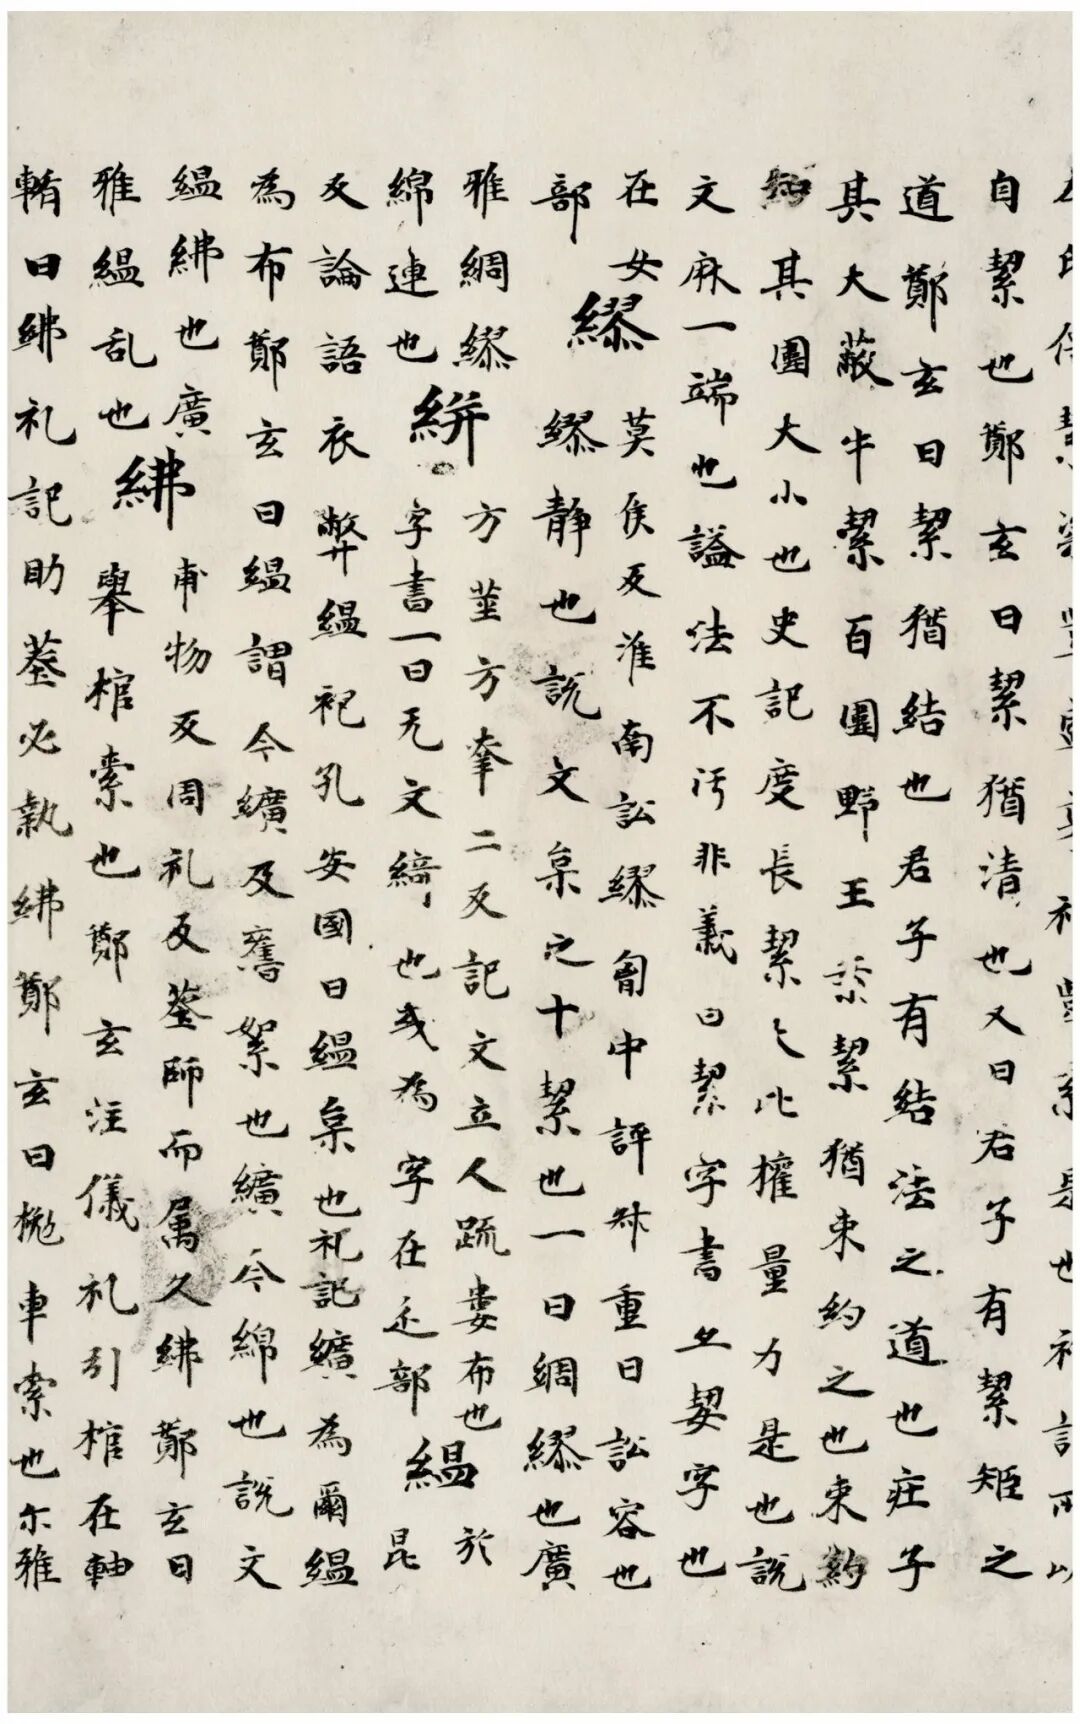 自絜也鄭玄曰絜猶清也又曰君子有絜矩之
道鄭玄曰絜猶結也君子有結法之道也庄子
其大蔽牛絜百圍野王案絜猶束約之也束約
知其圍大小也史記度長絜〻比權量力是也說
文麻一端也謚法不汙非義曰絜字書亦挈字也
在女部
繆 莫侯反淮南訟繆匈中評野重曰訟容也
繆静也說文枲之十絜也一曰綢繆也廣
雅綢繆綿連也
絣 方莖方幸二反記文立人疏婁布也
字書一曰无文綺也或為字在辵部
緼 於昆
反論語衣弊緼袍孔安國曰緼枲也礼記纊為爾緼
為布鄭玄曰緼謂今纊及舊絮也纊今綿也說文
緼紼也廣雅緼乱也
紼 甫物反周礼及葬師而属六紼鄭玄曰
舉棺索也鄭玄注儀礼引棺在軸
輴曰紼礼記助葬必執紼鄭玄曰挽車索也尓雅